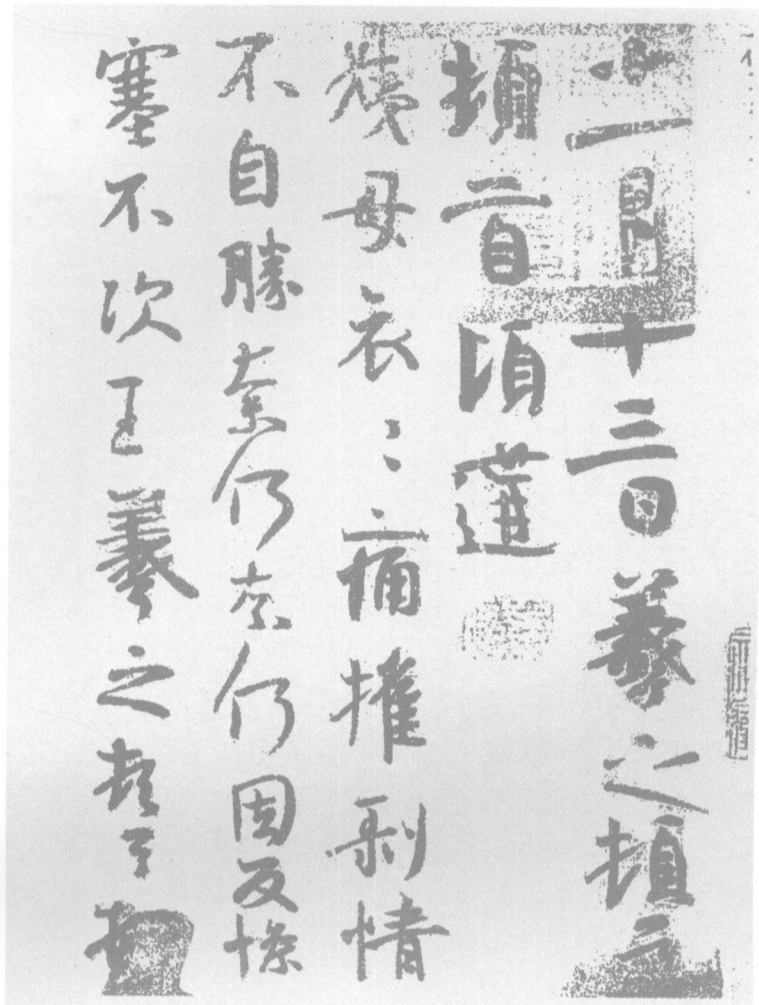 十一月十三日羲之頓首
頓首頃遘
姨母哀〻痛摧剥情
不自勝柰何柰何因反慘
塞不次王羲之頓首頓